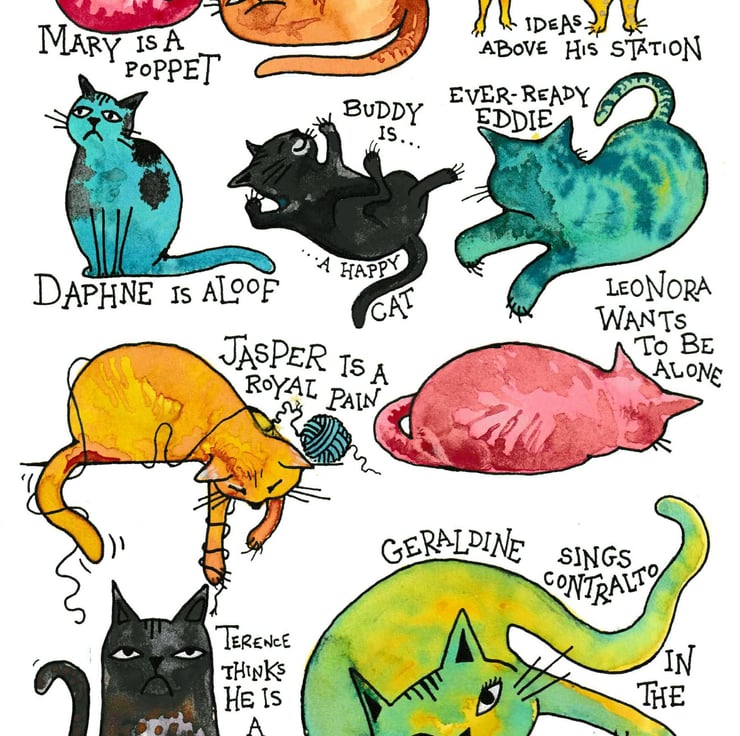 MARY IS A
POPPET
IDEAS
ABOVE HIS STATION
BUDDY
IS...
EVER-READY
EDDIE
DAPHNE IS ALOOF
...A HAPPY
CAT
LEONORA
WANTS
TO BE
ALONE
JASPER IS A
ROYAL PAIN
GERALDINE
SINGS
CONTRALTO
IN
THE
TERENCE
THINKS
HE IS
A